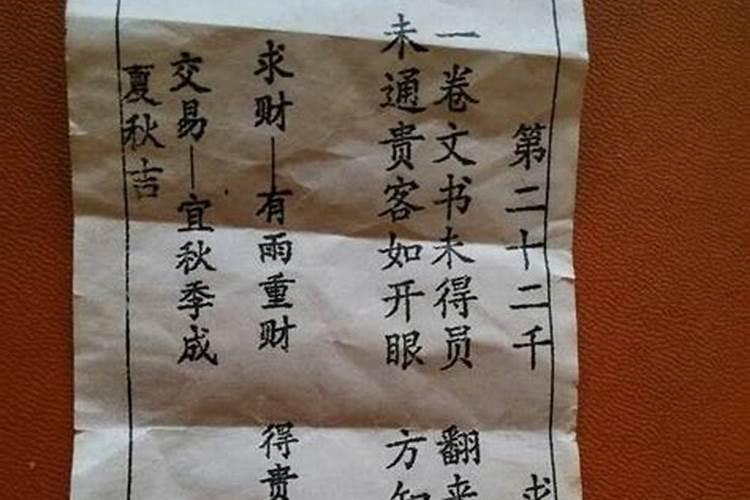 第二十二千
一卷文书未得员 翻来
未通贵客如开眼 方知
求财—有雨重财 得贵
交易—宜秋季成
夏秋吉